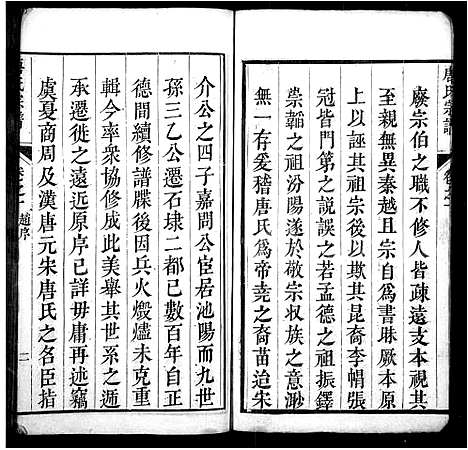 唐氏宗譜
廢宗伯之職不修人皆疎遠支本視其
至親無異秦越且宗自為書昧厥本原
上以誣其祖宗後以欺其昆裔李帽張
冠皆門第之說誤之若孟德之祖振鐸
崇韜之祖汾陽遂於敬宗收族之意渺
無一存爰稽唐氏為帝堯之裔苗迨朱
介公之四子嘉問公宦居池陽而九世
孫三乙公遷石埭二都已數百年自正
德間續修譜牒後因兵火燬燼未克重
輯今率衆協修此美舉其世系之遞
承遷徙之遠近原序已詳毋庸再述竊
虞夏商周及漢唐元朱唐氏之名臣指
趙序
二